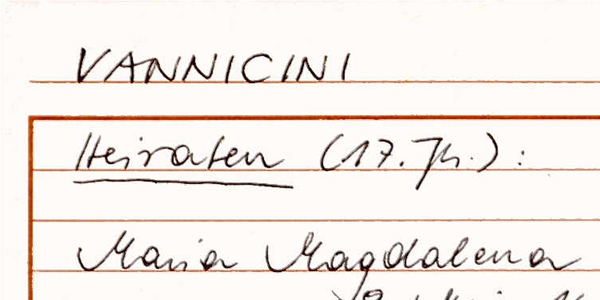 VANNICINI
Heiraten (17. Jh.):
Maria Magdalena